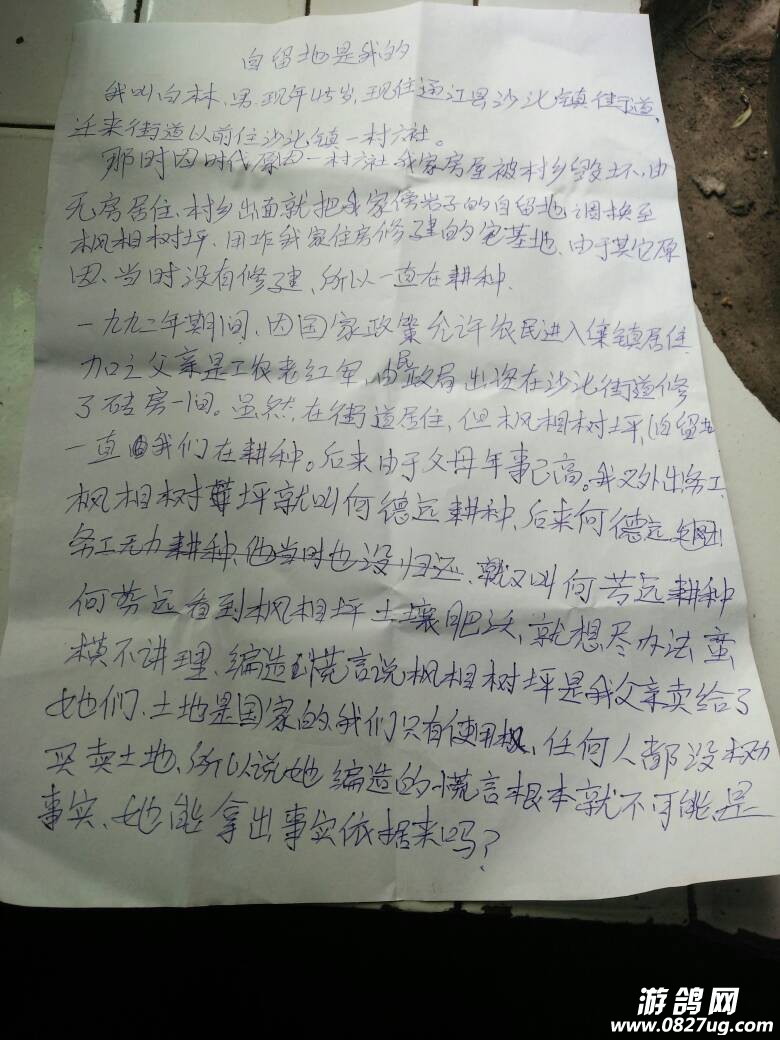 自留地是我的
我叫白林,男,现年45岁,现住通江县沙北镇街道,
迁来街道以前住沙北镇一村六社。
那时因时代原因一村六社我家房屋被村乡毁坏,由
无房居住,村乡出面就把我家傍岩子的自留地调换至
枫相树坪,用作我家住房修建的宅基地,由于其它原
因、当时没有修建,所以一直在耕种.
一九九二年期间,因国家政策允许农民进入集镇居住
加之父亲是工农老红军,由民政局出资在沙北街道修
了砖房一间。虽然在街道居住,但枫相树坪,(自留地
一直由我们在耕种。后来由于父母年事已高。我又外出务工,
枫相树坪就叫何德远耕种,后来何德远
务工无力耕种,他当时也没归还,就又叫何芳远耕种
何芳远看到枫相坪土壤肥沃,就想尽办法蛮
横不讲理,编造谎言说枫相树坪是我父亲卖给了
她们,土地是国家的,我们只有使用权,任何人都没权力
买卖土地,所以说她编造的谎言根本就不可能是
事实,她能拿出事实依据来吗?
游鸽网
www.0827ug.com